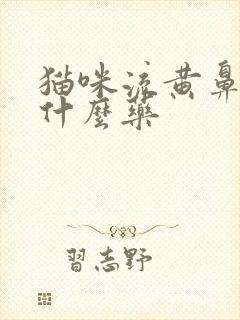 猫咪流黄鼻
什麼藥
習志野